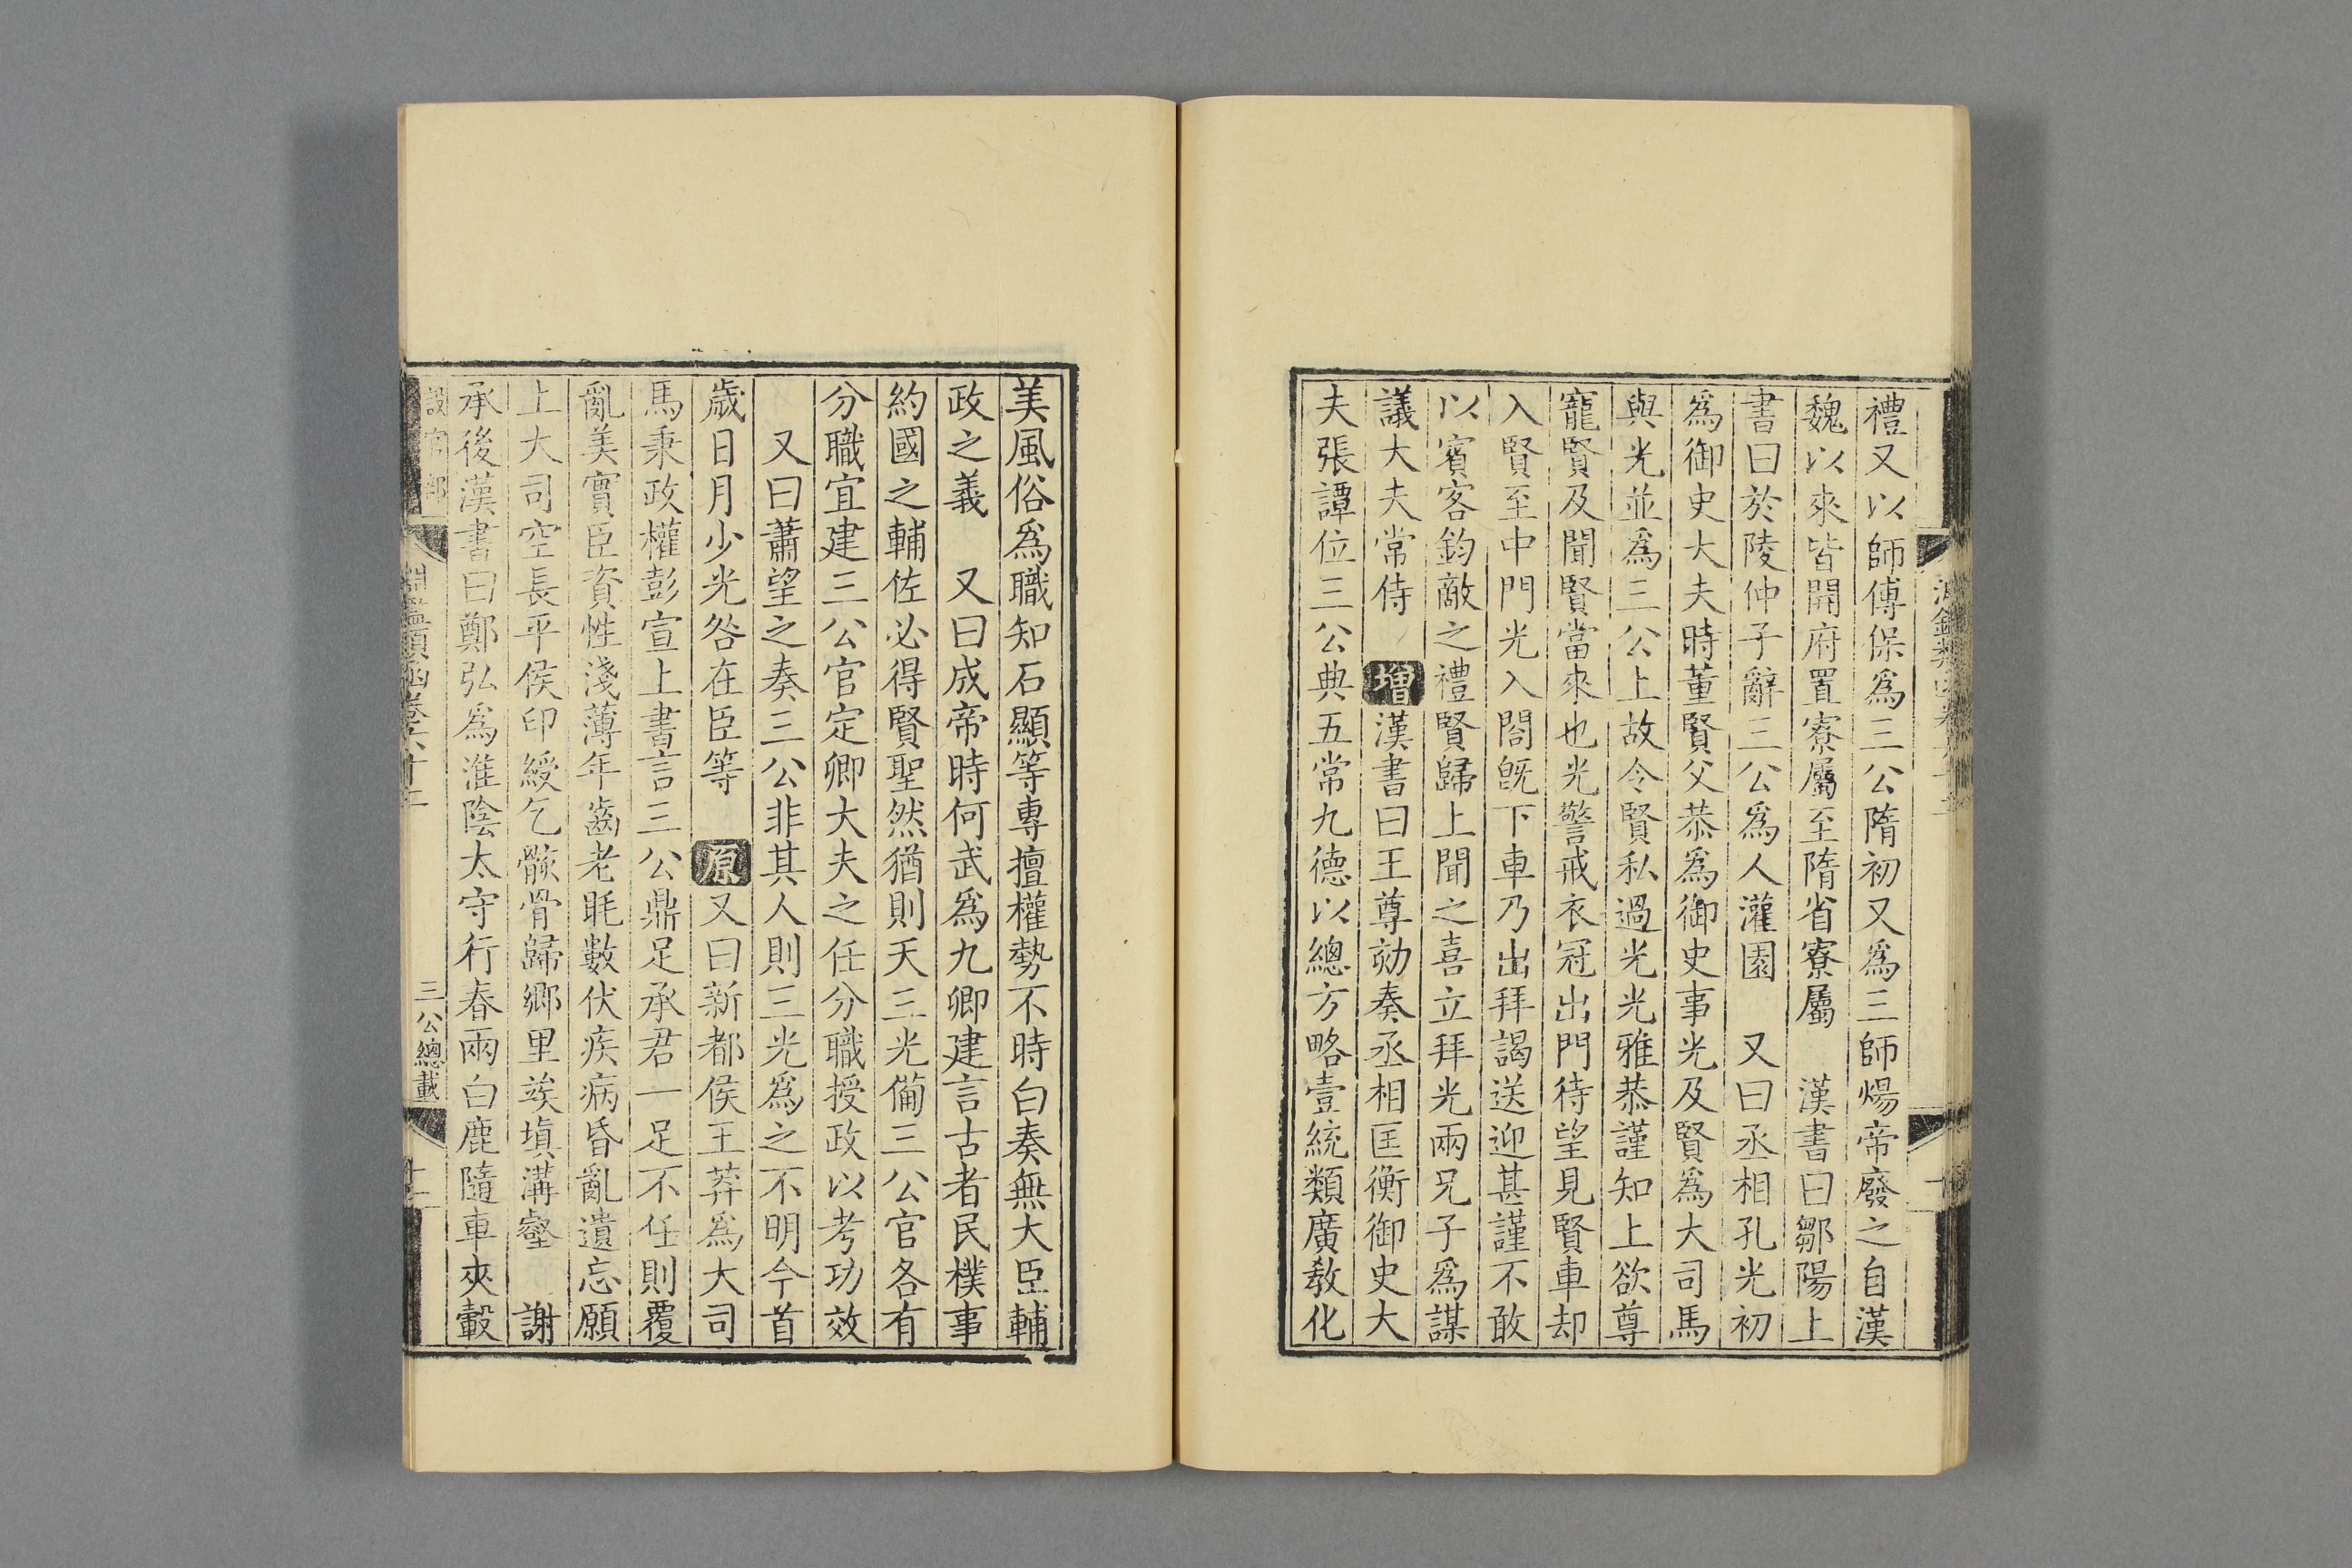 禮又以師傅保爲三公隋初又爲三師煬帝廢之自漢
魏以來皆開府置寮屬至隋省寮屬　漢書曰鄒陽上
書曰於陵仲子辭三公爲人灌園　又曰丞相孔光初
爲御史大夫時董賢父恭爲御史事光及賢爲大司馬
與光並爲三公上故令賢私過光光雅恭謹知上欲尊
寵賢及聞賢當來也光警戒衣冠出門待望見賢車却
入賢至中門光入閤旣下車乃出拜謁送迎甚謹不敢
以賓客鈞敵之禮賢歸上聞之喜立拜光兩兄子爲謀
議大夫常侍　增漢書曰王尊劾奏丞相匡衡御史大
夫張譚位三公典五常九德以總方略壹統類廣敎化
美風俗爲職知石顯等專擅權勢不時白奏無大臣輔
政之義　又曰成帝時何武爲九卿建言古者民樸事
約國之輔佐必得賢聖然猶則天三光備三公官各有
分職宜建三公官定卿大夫之任分職授政以考功效
又曰蕭望之奏三公非其人則三光爲之不明今首
歲日月少光咎在臣等　原又曰新都侯王莽爲大司
馬秉政權彭宣上書言三公鼎足承君一足不任則覆
亂美實臣資性淺薄年齒老眊數伏疾病昏亂遺忘願
上大司空長平侯印綬乞骸骨歸鄉里竢塡溝壑　謝
承後漢書曰鄭弘爲淮陰太守行春兩白鹿隨車夾轂
淵鑑類函卷六十二
三公總載
十二